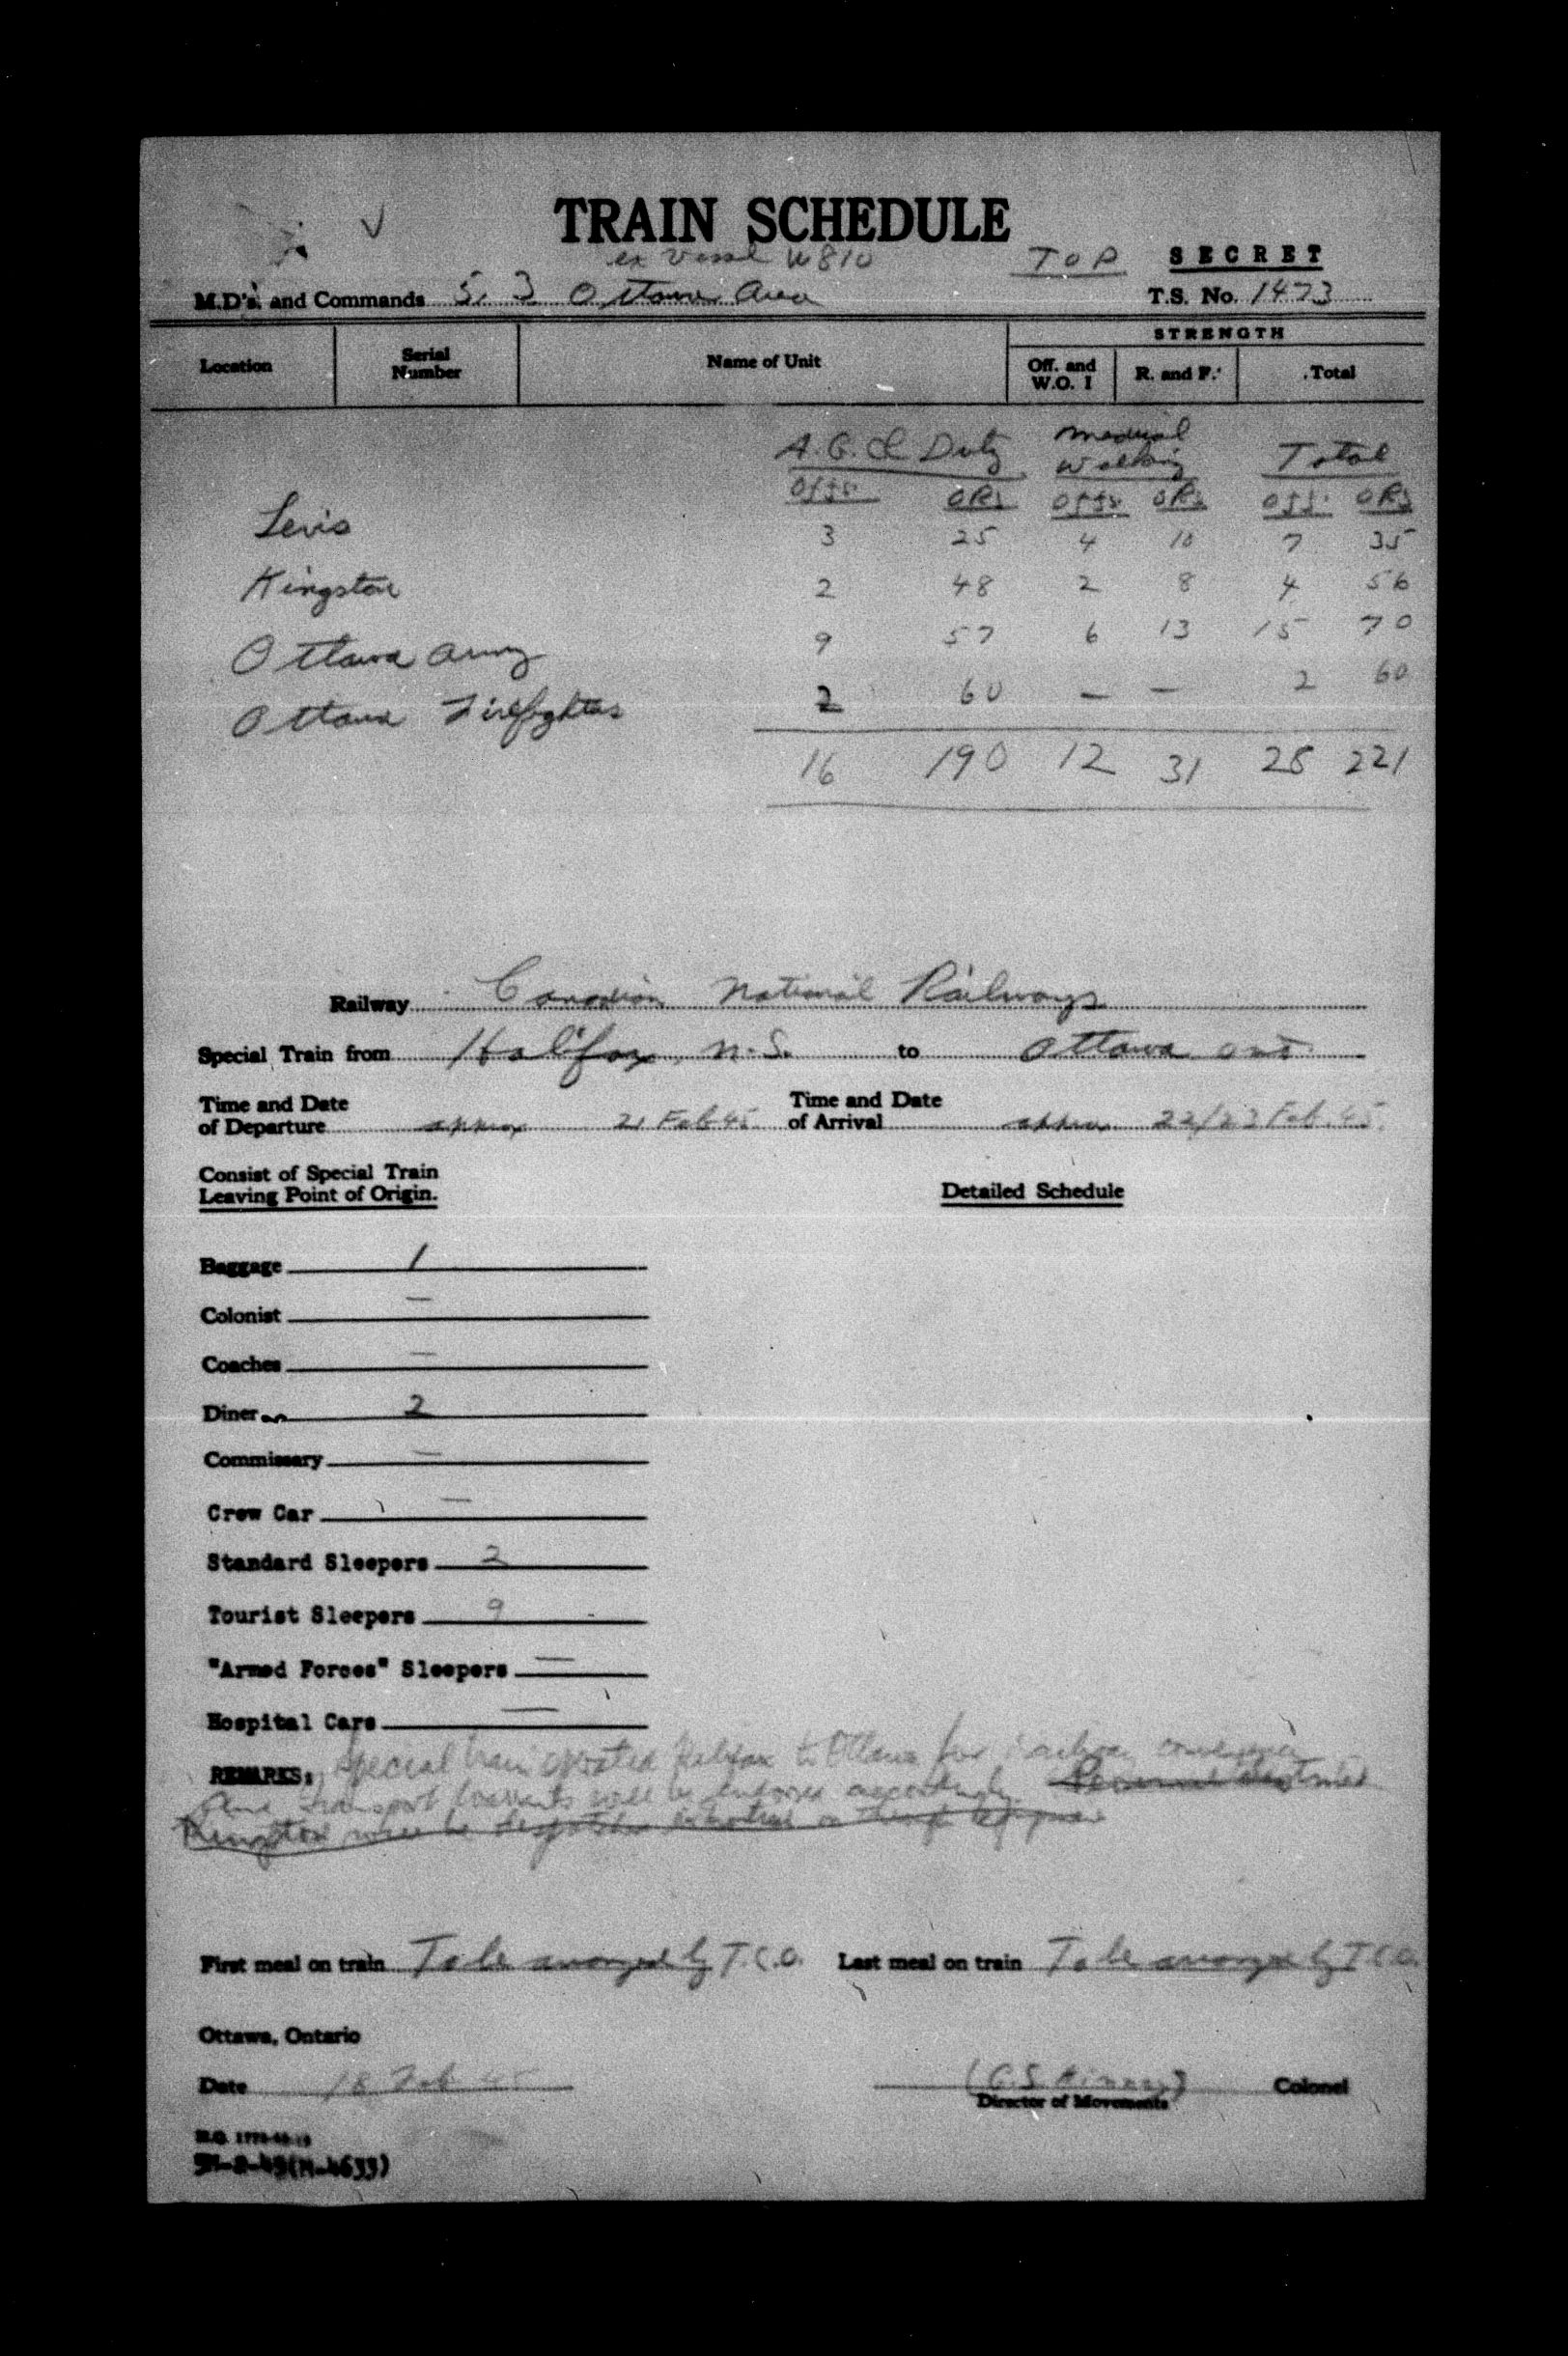 TRAIN SCHEDULE
ex Vessel W810
TOP SECRET
M.D's. and Commands 5. 3 Ottawa Area
T.S. No. 1473
STRENGTH
Location Serial Number Name of Unit Off. and W.O. I R. and F. Total
A.G. & Duty Medical Walking Total
Offs. ORs Offs ORs Offs. ORs
Levis 3 25 4 10 7 35
Kingston 2 48 2 8 4 56
Ottawa Army 9 57 6 13 15 70
Ottawa Firefighters 2 60 — — 2 60
16 190 12 31 28 221
Railway Canadian National Railways
Special Train from Halifax, N.S. to Ottawa Ont.
Time and Date of Departure approx 21 Feb 45 Time and Date of Arrival approx 22/23 Feb. 45.
Consist of Special Train
Leaving Point of Origin.
Detailed Schedule
Baggage 1
Colonist —
Coaches —
Diner 2
Commissary —
Crew Car —
Standard Sleepers 2
Tourist Sleepers 9
"Armed Forces" Sleepers —
Hospital Cars —
REMARKS: Special train operated Halifax to Ottawa for railway convenience
and transport warrants will be endorsed accordingly.
Kingston will be
First meal on train To be arranged by T.C.O. Last meal on train To be arranged by T.C.O.
Ottawa, Ontario
Date 18 Feb 45
Colonel
Director of Movements
(M-4633)